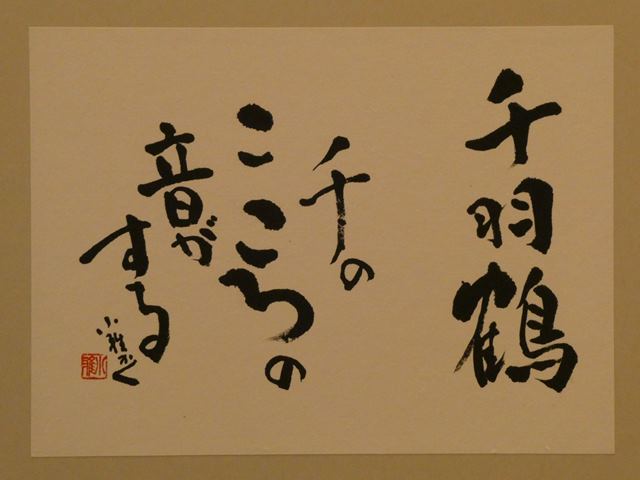 千羽鶴
千の
こころの
音が
する